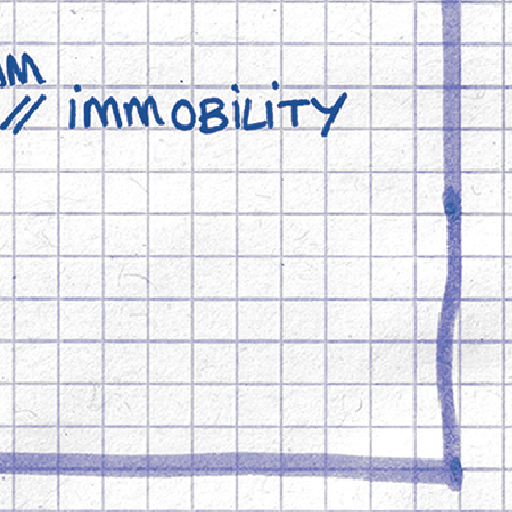 // iMMOBiLiTY